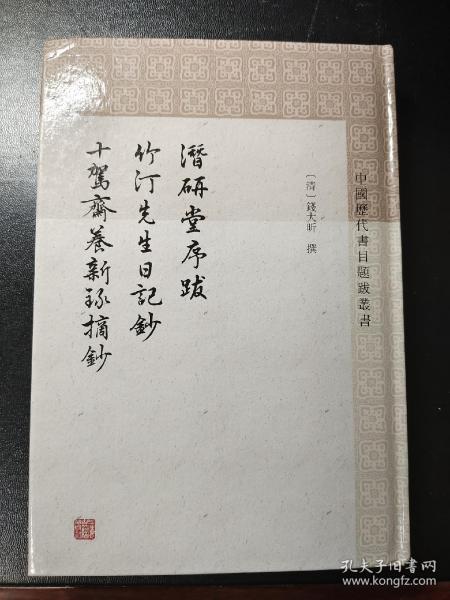 中國歷代書目題跋叢書
〔清〕錢大昕 撰
潛研堂序跋
竹汀先生日記鈔
十駕齋養新録摘鈔
孔夫子旧书网
www.kongfz.com